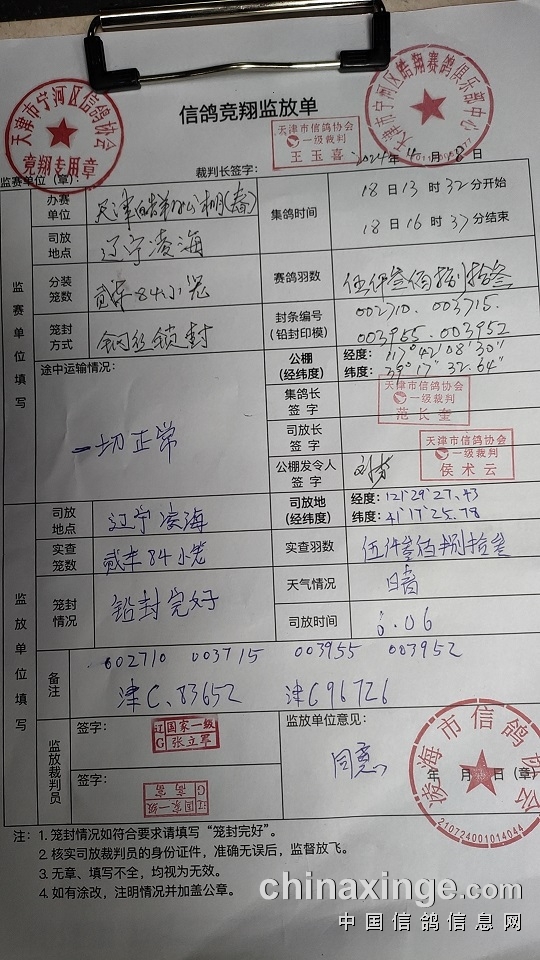 信鸽竞翔监放单
天津市宁河区信鸽协会
竞翔专用章
天津市宁河区皓翔赛鸽俱乐部中心
天津市信鸽协会
一级裁判
王玉喜
监赛单位（章）： 裁判长签字： 2024年4月18日
监赛单位填写
办赛单位
集鸽时间 18日13时32分开始
18日16时37分结束
司放地点 辽宁凌海
分装笼数 贰车84小笼
赛鸽羽数 伍仟叁佰捌拾叁
笼封方式 钢丝锁封
封条编号（铅封印模） 002710、003715、
003955、003952
途中运输情况：
一切正常
公棚（经纬度） 经度：117°42'08'30"
纬度：39°17'32.64"
集鸽长签字
天津市信鸽协会
一级裁判
范长奎
司放长签字
天津市信鸽协会
一级裁判
侯术云
公棚发令人签字
监放单位填写
司放地点 辽宁凌海
司放地（经纬度） 经度：121°29'27.43
纬度：41°17'25.78
实查笼数 贰车84小笼
实查羽数 伍仟叁佰捌拾叁
笼封情况 铅封完好
天气情况 晴
司放时间 6.06
备注 002710 003715 003955 003952
津C.83652 津C96726
监放裁判员
签字： 辽国家一级
G 张立军
签字：
辽国家一级
G
监放单位意见：
同意
年 月 日（章）
凌海市信鸽协会
210724001014044
注：1. 笼封情况如符合要求请填写“笼封完好”。
2. 核实司放裁判员的身份证件，准确无误后，监督放飞。
3. 无章、填写不全，均视为无效。
4. 如有涂改，注明情况并加盖公章。
chinaxinge.com
中国信鸽信息网